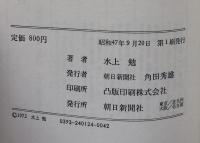 定価 800円
昭和47年9月20日 第1刷発行
著者 水上 勉
発行者 朝日新聞社 角田秀雄
印刷所 凸版印刷株式会社
発行所 朝日新聞社
©1972 水上 勉 0393-240124-0042